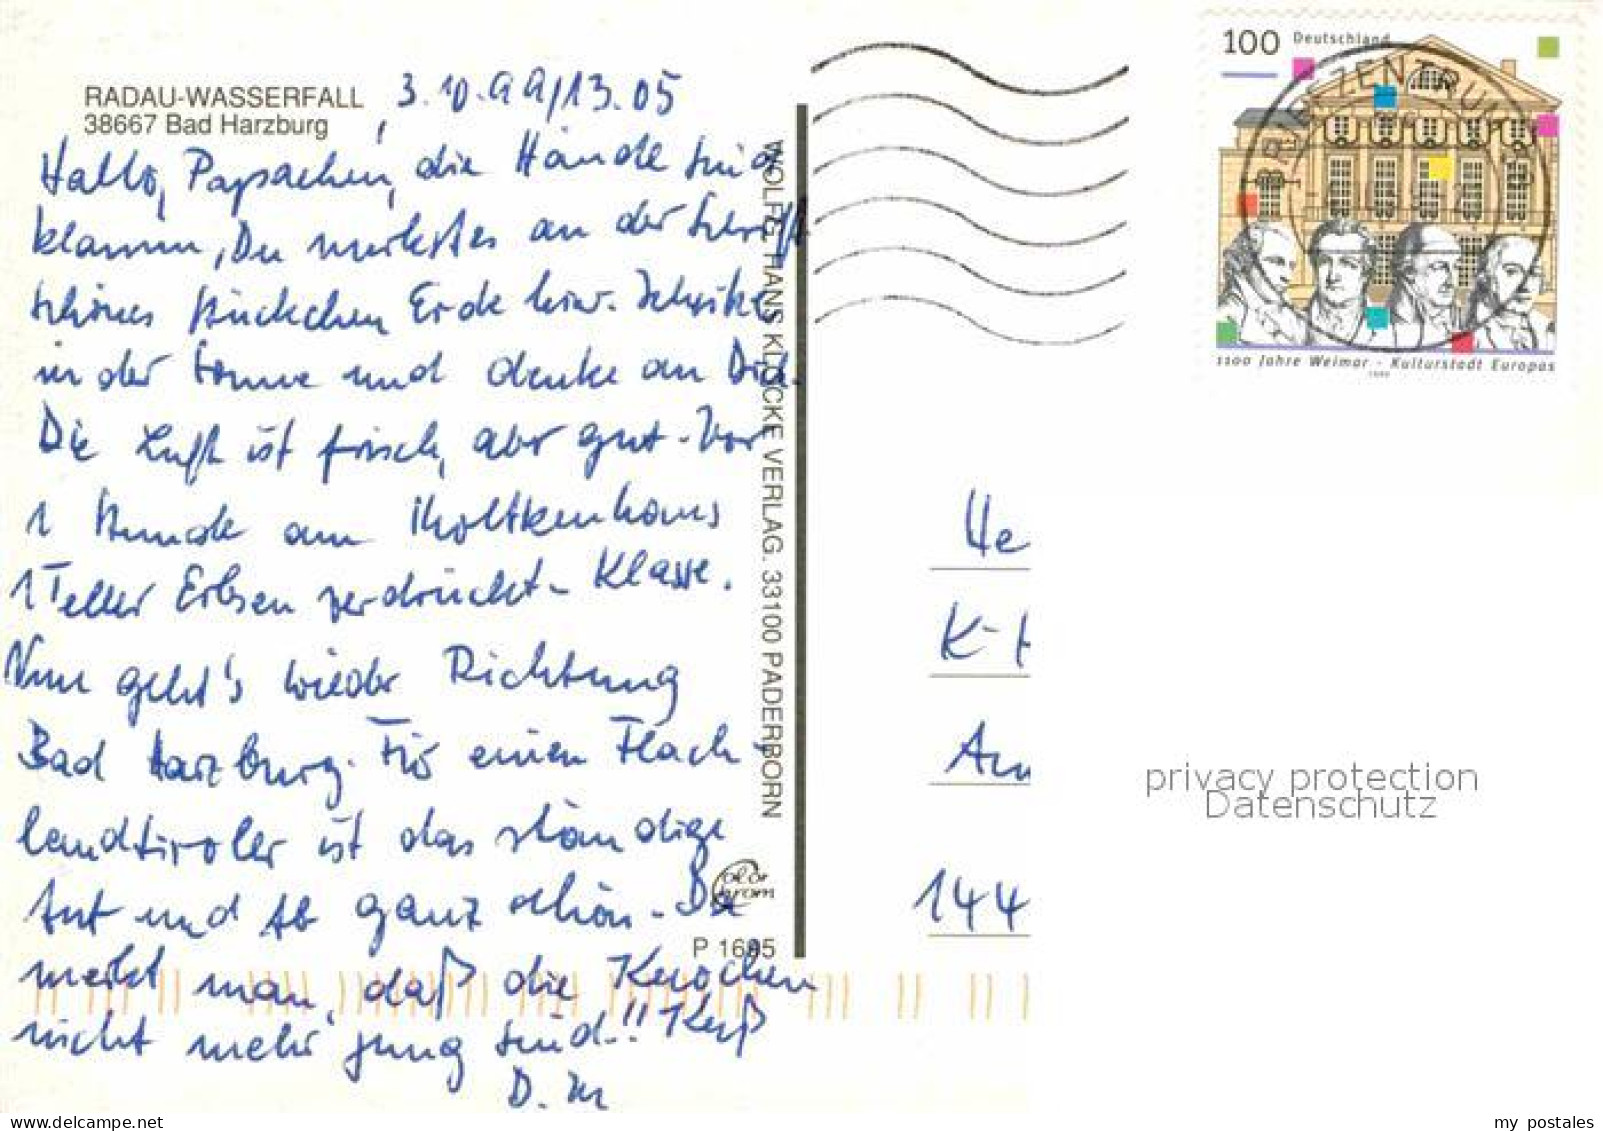 RADAU-WASSERFALL
38667 Bad Harzburg
3.10.99/13.05
Hallo, Papachen, die Hände sind
klamm, Du merkst es an der Schrift
schönes Stückchen Erde hier. Schwitze
in der Sonne und denke an Dich.
Die Luft ist frisch, aber gut - Vor
1 Stunde am Molkenhaus
1 Teller Erbsen verdrückt - Klasse.
Nun geht's wieder Richtung
Bad Harzburg. Für einen Flach-
landtiroler ist das ständige
Auf und Ab ganz schön - Da
merkt man, daß die Knochen
nicht mehr jung sind!! Kuß
D. M
WOLFG. HANS KLOCKE VERLAG. 33100 PADERBORN
P 1695
100 Deutschland
BRIEFZENTRUM
1100 Jahre Weimar - Kulturstadt Europas
1999
He
K-H
Am
144
privacy protection
Datenschutz
my postales